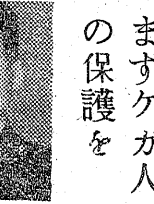 ますケガ人
の保護を